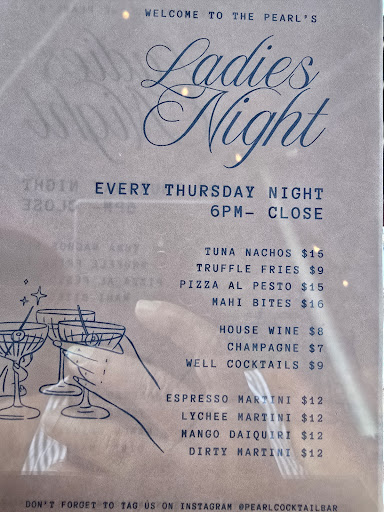 WELCOME TO THE PEARL'S
Ladies
Night
EVERY THURSDAY NIGHT
6PM- CLOSE
TUNA NACHOS $15
TRUFFLE FRIES $9
PIZZA AL PESTO $15
MAHI BITES $16
HOUSE WINE $8
CHAMPAGNE $7
WELL COCKTAILS $9
ESPRESSO MARTINI $12
LYCHEE MARTINI $12
MANGO DAIQUIRI $12
DIRTY MARTINI $12
DON'T FORGET TO TAG US ON INSTAGRAM @PEARLCOCKTAILBAR